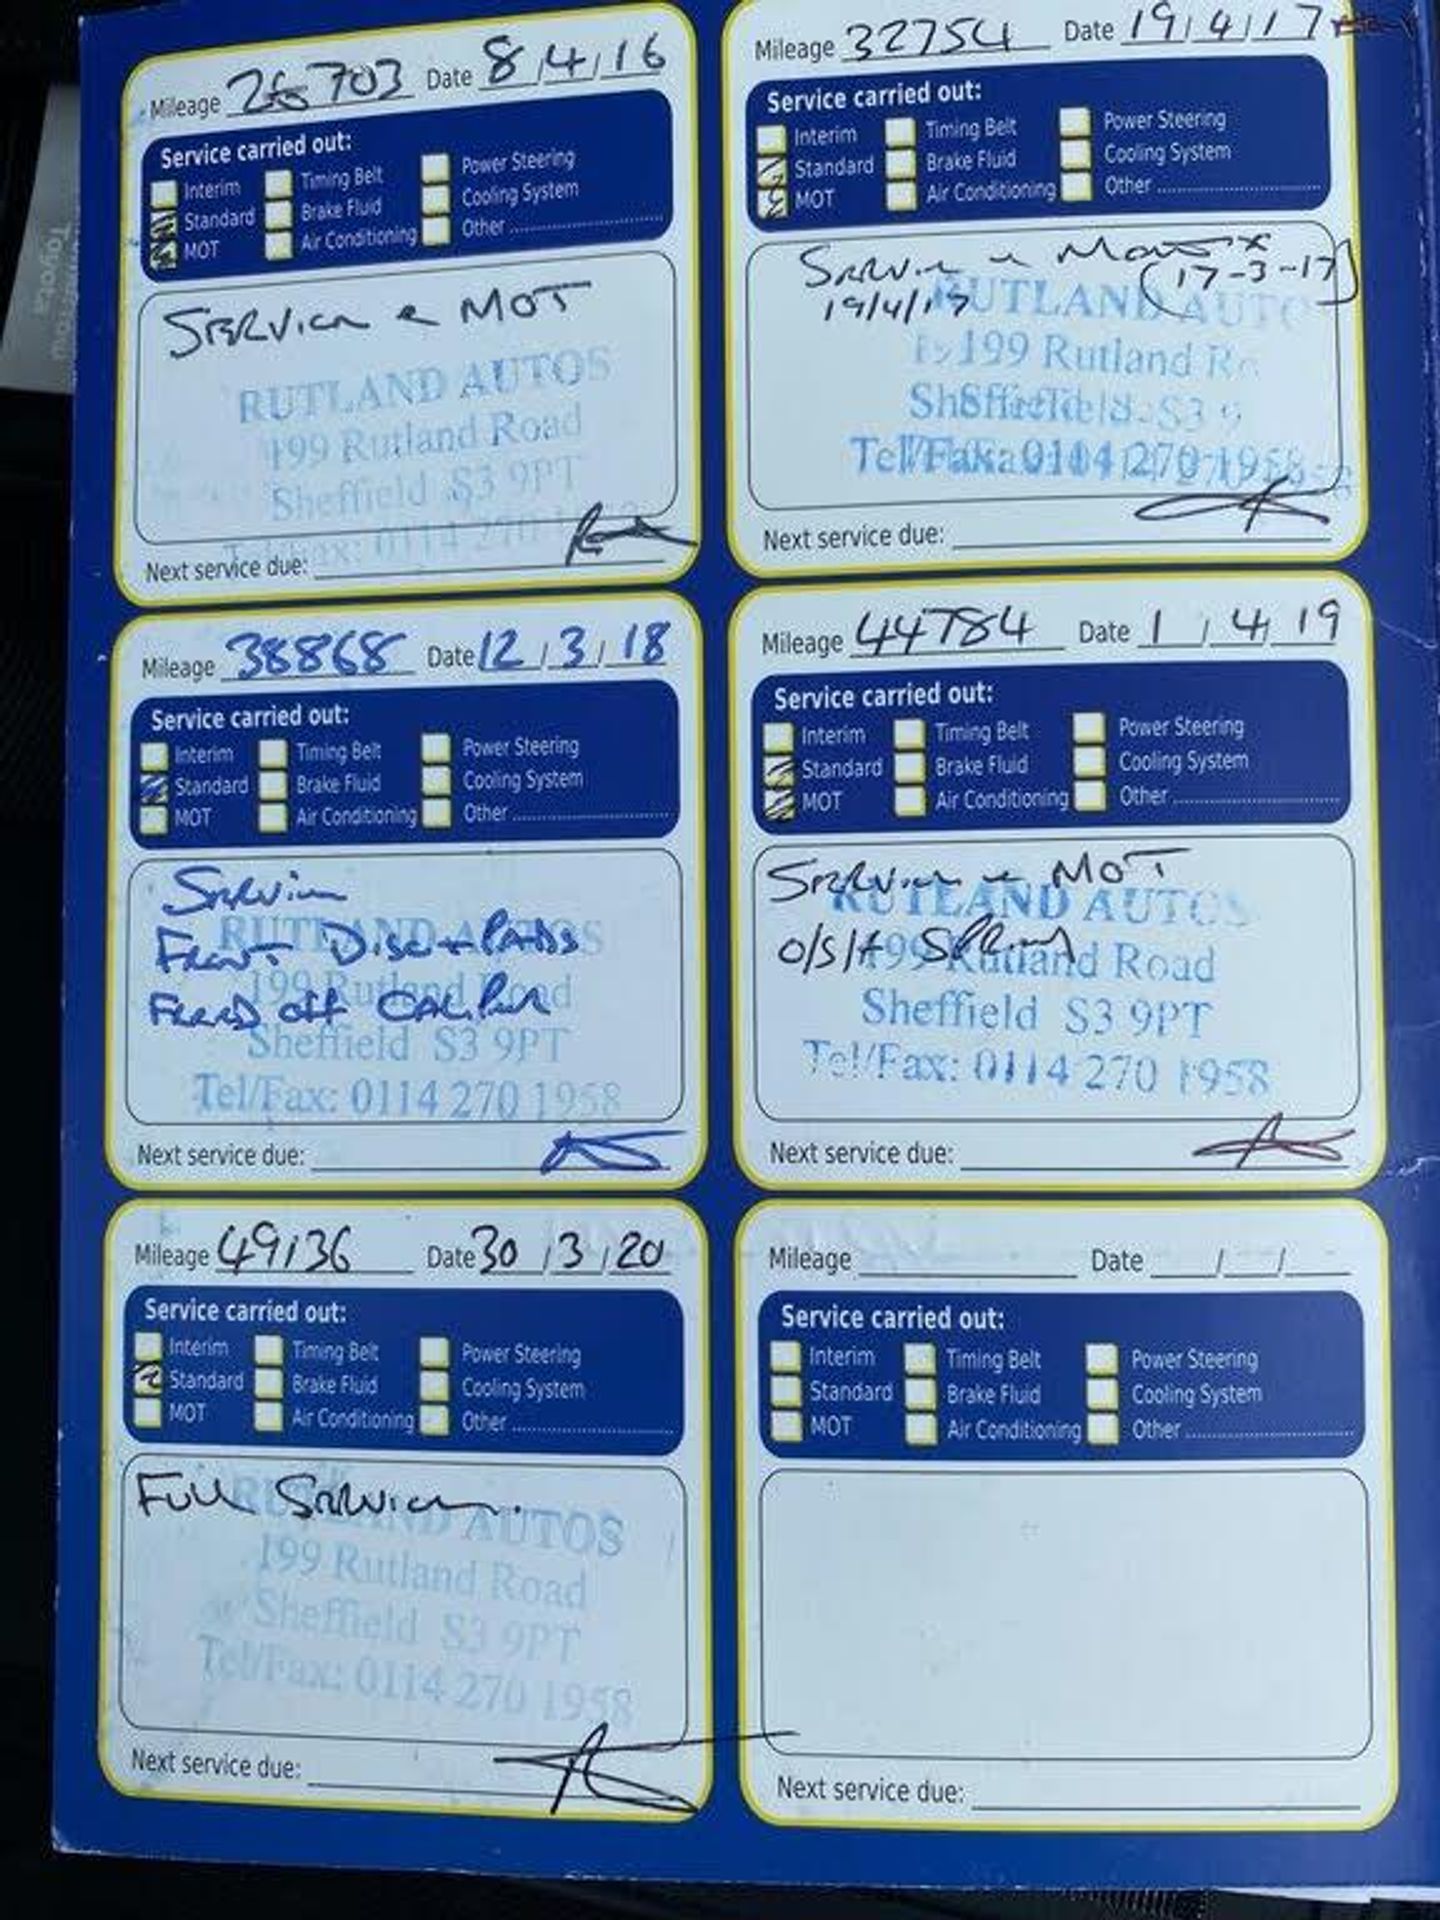 Mileage 26703 Date 8/4/16
Service carried out:
Interim Timing Belt Power Steering
Standard Brake Fluid Cooling System
MOT Air Conditioning Other
SERVICE & MOT
RUTLAND AUTOS
199 Rutland Road
Sheffield S3 9PT
Tel/Fax: 0114 270
Next service due:
Mileage 32754 Date 19/4/17
Service carried out:
Interim Timing Belt Power Steering
Standard Brake Fluid Cooling System
MOT Air Conditioning Other
SERVICE & MOT
(17-3-17)
19/4/17
RUTLAND AUTO
199 Rutland R
Sheffield S3 9
Tel/Fax: 0114 270 1958
Next service due:
Mileage 38868 Date 12/3/18
Service carried out:
Interim Timing Belt Power Steering
Standard Brake Fluid Cooling System
MOT Air Conditioning Other
SERVICE
FRONT DISC + PADS
FREED OFF CALIPER
RUTLAND AUTOS
199 Rutland Road
Sheffield S3 9PT
Tel/Fax: 0114 270 1958
Next service due:
Mileage 44784 Date 1/4/19
Service carried out:
Interim Timing Belt Power Steering
Standard Brake Fluid Cooling System
MOT Air Conditioning Other
SERVICE & MOT
O/S/F SPRING
RUTLAND AUTOS
199 Rutland Road
Sheffield S3 9PT
Tel/Fax: 0114 270 1958
Next service due:
Mileage 49136 Date 30/3/20
Service carried out:
Interim Timing Belt Power Steering
Standard Brake Fluid Cooling System
MOT Air Conditioning Other
FULL SERVICE.
RUTLAND AUTOS
199 Rutland Road
Sheffield S3 9PT
Tel/Fax: 0114 270 1958
Next service due:
Mileage Date / /
Service carried out:
Interim Timing Belt Power Steering
Standard Brake Fluid Cooling System
MOT Air Conditioning Other
Next service due:
Toyota